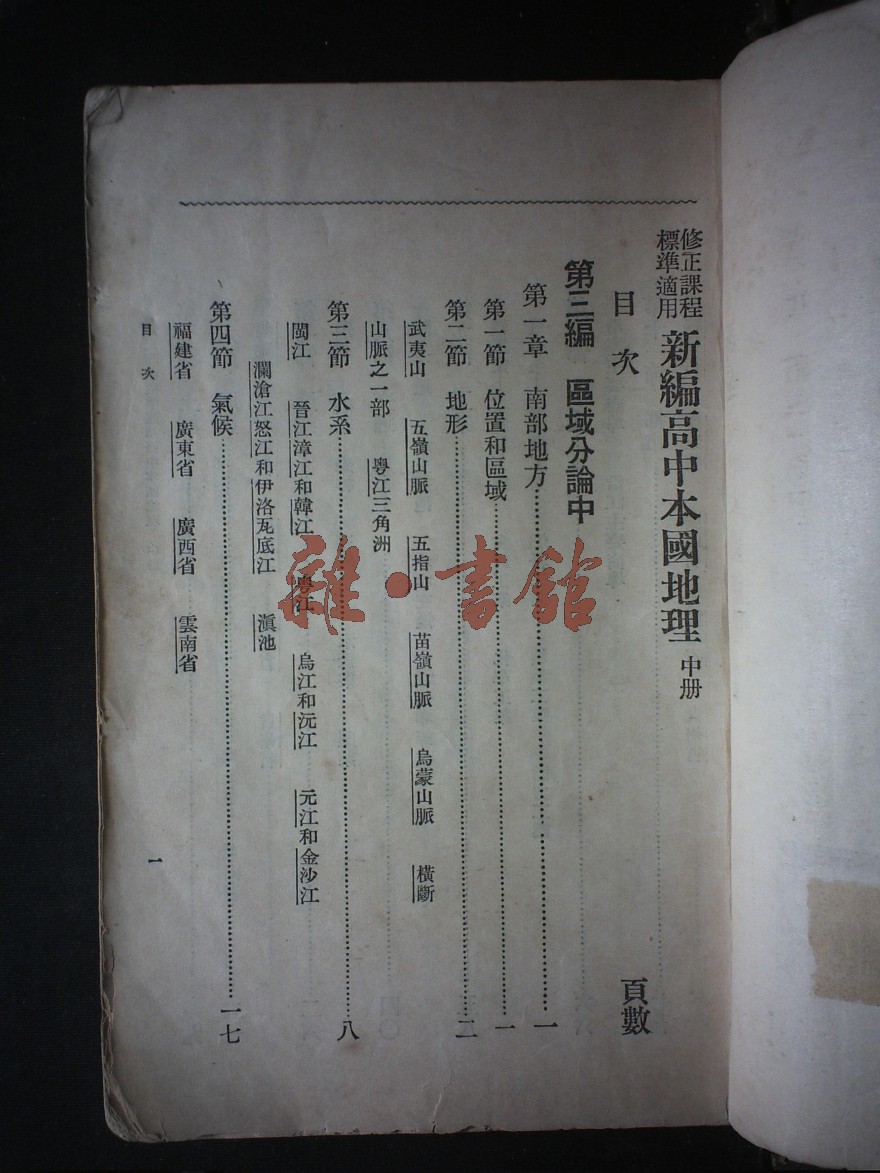 修正課程標準適用 新編高中本國地理 中册
目次 頁數
第三編 區域分論中
第一章 南部地方……一
第一節 位置和區域……一
第二節 地形……二
武夷山 五嶺山脈 五指山 苗嶺山脈 烏蒙山脈 橫斷
山脈之一部 粵江三角洲
第三節 水系……八
閩江 晉江漳江和韓江 粵江 烏江和沅江 元江和金沙江
瀾滄江怒江和伊洛瓦底江 滇池
第四節 氣候……一七
福建省 廣東省 廣西省 雲南省
目次 一
雜·書館